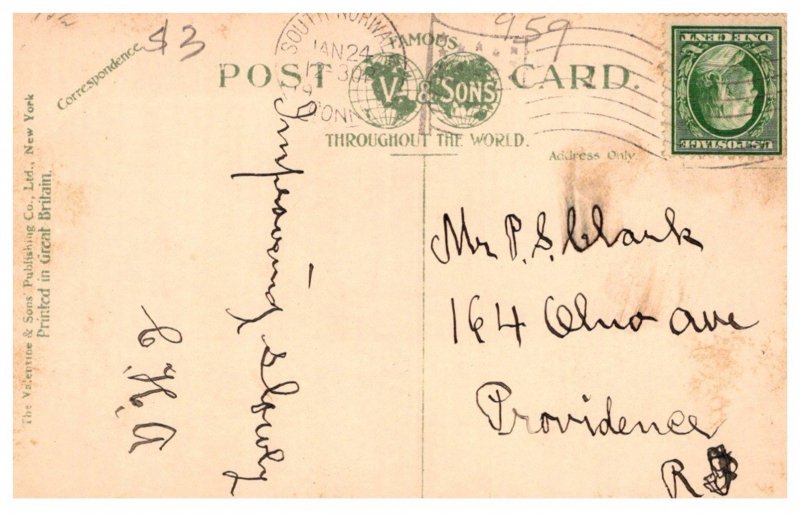 $3
959
Correspondence
POST CARD.
FAMOUS
V. & SONS
THROUGHOUT THE WORLD.
Address Only.
SOUTH NORWA
JAN 24
30P
CONN
U.S. POSTAGE
ONE CENT
The Valentine & Sons' Publishing Co., Ltd., New York
Printed in Great Britain.
Improving slowly
Mr P. S. Clark
164 Ohio Ave
Providence
R I